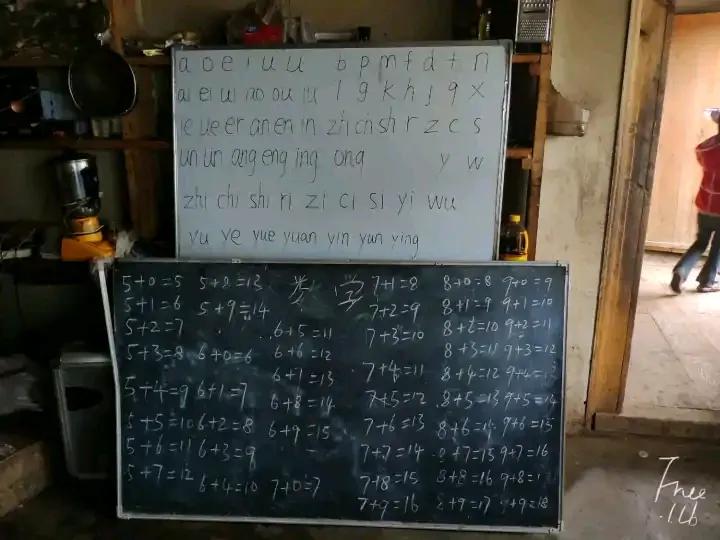 a o e i u ü b p m f d t n
ai ei ui ao ou iu l g k h j q x
ie üe er an en in zh ch sh r z c s
un ün ang eng ing ong y w
zhi chi shi ri zi ci si yi wu
yu ye yue yuan yin yun ying
数学
5+0=5
5+1=6
5+2=7
5+3=8
5+4=9
5+5=10
5+6=11
5+7=12
5+8=13
5+9=14
6+0=6
6+1=7
6+2=8
6+3=9
6+4=10
6+5=11
6+6=12
6+7=13
6+8=14
6+9=15
7+0=7
7+1=8
7+2=9
7+3=10
7+4=11
7+5=12
7+6=13
7+7=14
7+8=15
7+9=16
8+0=8
8+1=9
8+2=10
8+3=11
8+4=12
8+5=13
8+6=14
8+7=15
8+8=16
8+9=17
9+0=9
9+1=10
9+2=11
9+3=12
9+4=13
9+5=14
9+6=15
9+7=16
9+8=1
9+9=18